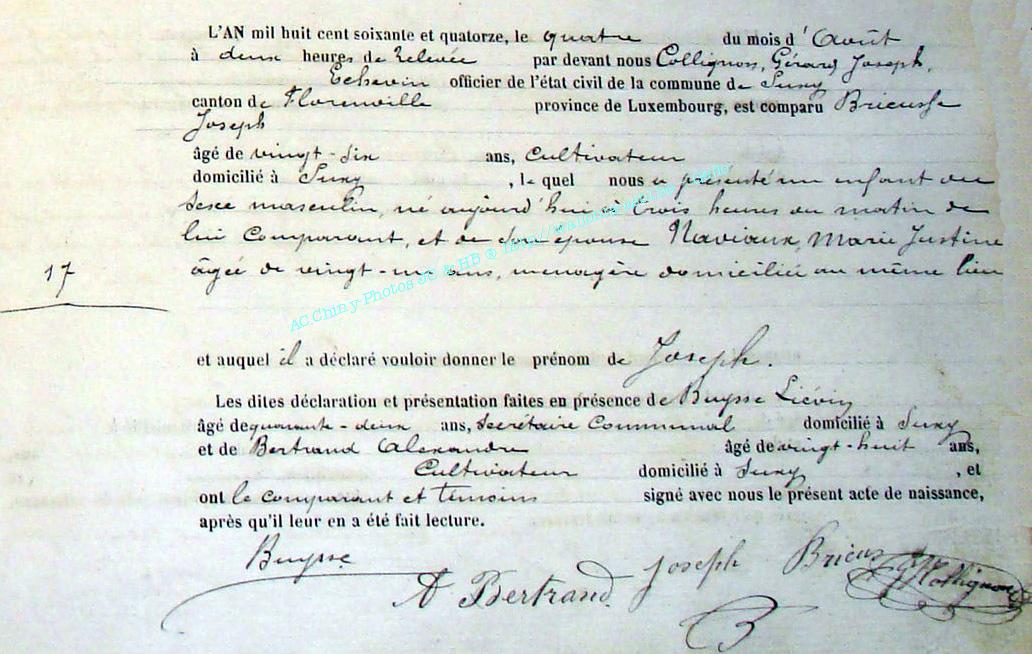 L'AN mil huit cent soixante et quatorze, le quatre du mois d'Août
à deux heures de relevée par devant nous Collignon, Gérard Joseph,
Echevin officier de l'état civil de la commune de Suxy
canton de Florenville province de Luxembourg, est comparu Bricusse
Joseph
âgé de vingt-six ans, Cultivateur
domicilié à Suxy, lequel nous a présenté un enfant du
sexe masculin, né aujourd'hui à trois heures du matin de
lui Comparant, et de son épouse Naviaux, Marie Justine
17 âgée de vingt-un ans, menagère domiciliée au même lieu
AC.Chiny Photos JC & HB ®
et auquel il a déclaré vouloir donner le prénom de Joseph.
Les dites déclaration et présentation faites en présence de Buysse Liévin
âgé de quarante-deux ans, Secrétaire Communal domicilié à Suxy
et de Bertrand Alexandre âgé de vingt-huit ans,
Cultivateur domicilié à Suxy, et
ont le comparant et témoins signé avec nous le présent acte de naissance,
après qu'il leur en a été fait lecture.
Buysse
A Bertrand Joseph Bricus Collignon